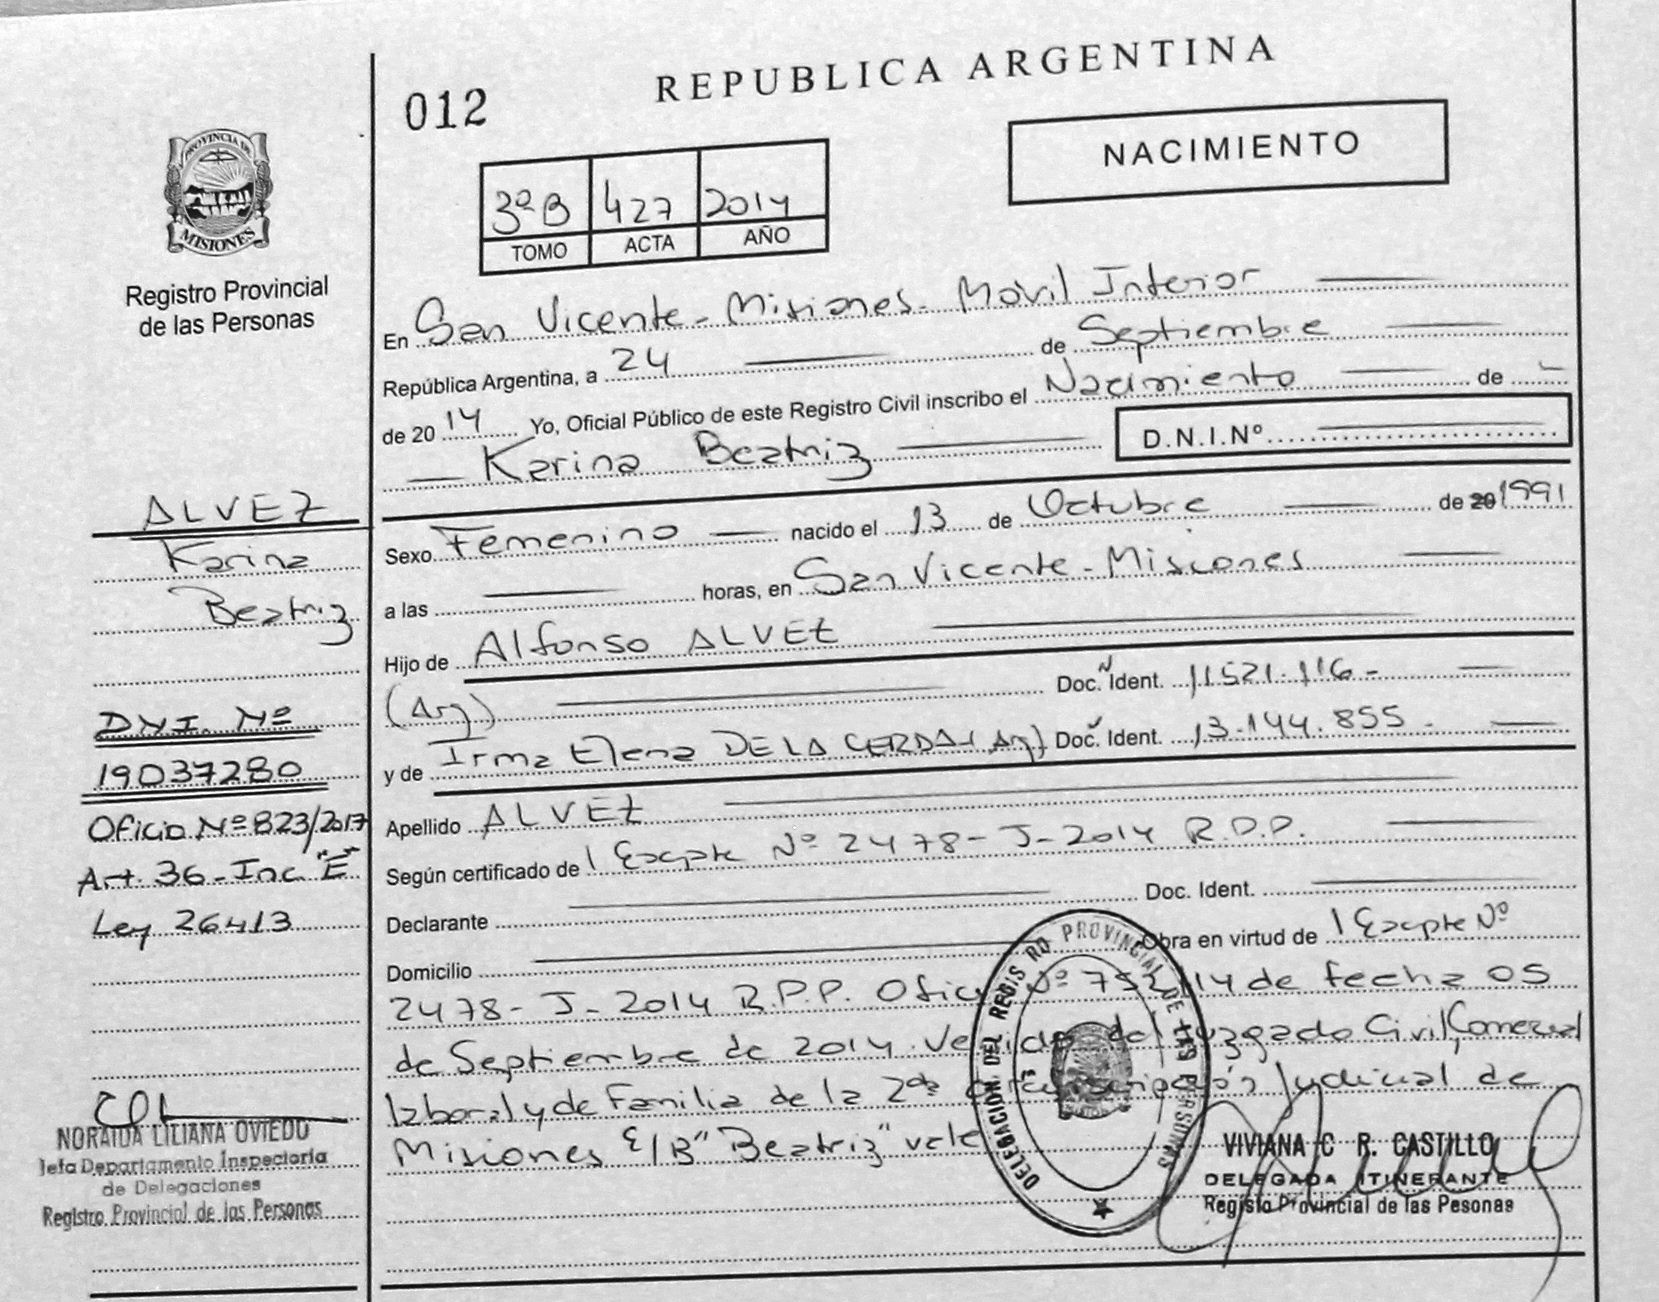 012
REPUBLICA ARGENTINA
NACIMIENTO
3º B 427 2014
TOMO ACTA AÑO
PROVINCIA DE
MISIONES
Registro Provincial
de las Personas
En San Vicente - Misiones - Móvil Interior
República Argentina, a 24 de Septiembre
de 2014 Yo, Oficial Público de este Registro Civil inscribo el Nacimiento de
Karina Beatriz D.N.I.Nº
Sexo Femenino nacido el 13 de Octubre de 20 1991
a las horas, en San Vicente - Misiones
Hijo de Alfonso ALVEZ
(Arg) Doc. Ident. 11521.116 -
y de Irma Elena DE LA CERDA (Arg) Doc. Ident. 13.144.855 -
Apellido ALVEZ
Según certificado de 1 Expte Nº 2478 - J - 2014 R.P.P.
Declarante Doc. Ident.
Domicilio Obra en virtud de 1 Expte Nº
2478 - J - 2014 R.P.P. Oficio Nº 752/14 de fecha 05
de Septiembre de 2014. Venido del Juzgado Civil, Comercial
laboral y de Familia de la 2da Circunscripción Judicial de
Misiones E/B "Beatriz" vale
ALVEZ
Karina
Beatriz
DNI. Nº
19037280
Oficio Nº 823/2017
Art. 36 - Inc "E"
Ley 26413
NORAIDA LILIANA OVIEDO
Jefa Departamento Inspectoria
de Delegaciones
Registro Provincial de las Personas
DELEGACION DEL REGISTRO PROVINCIAL DE LAS PERSONAS
VIVIANA C R. CASTILLO
DELEGADA ITINERANTE
Registo Provincial de las Pesonas